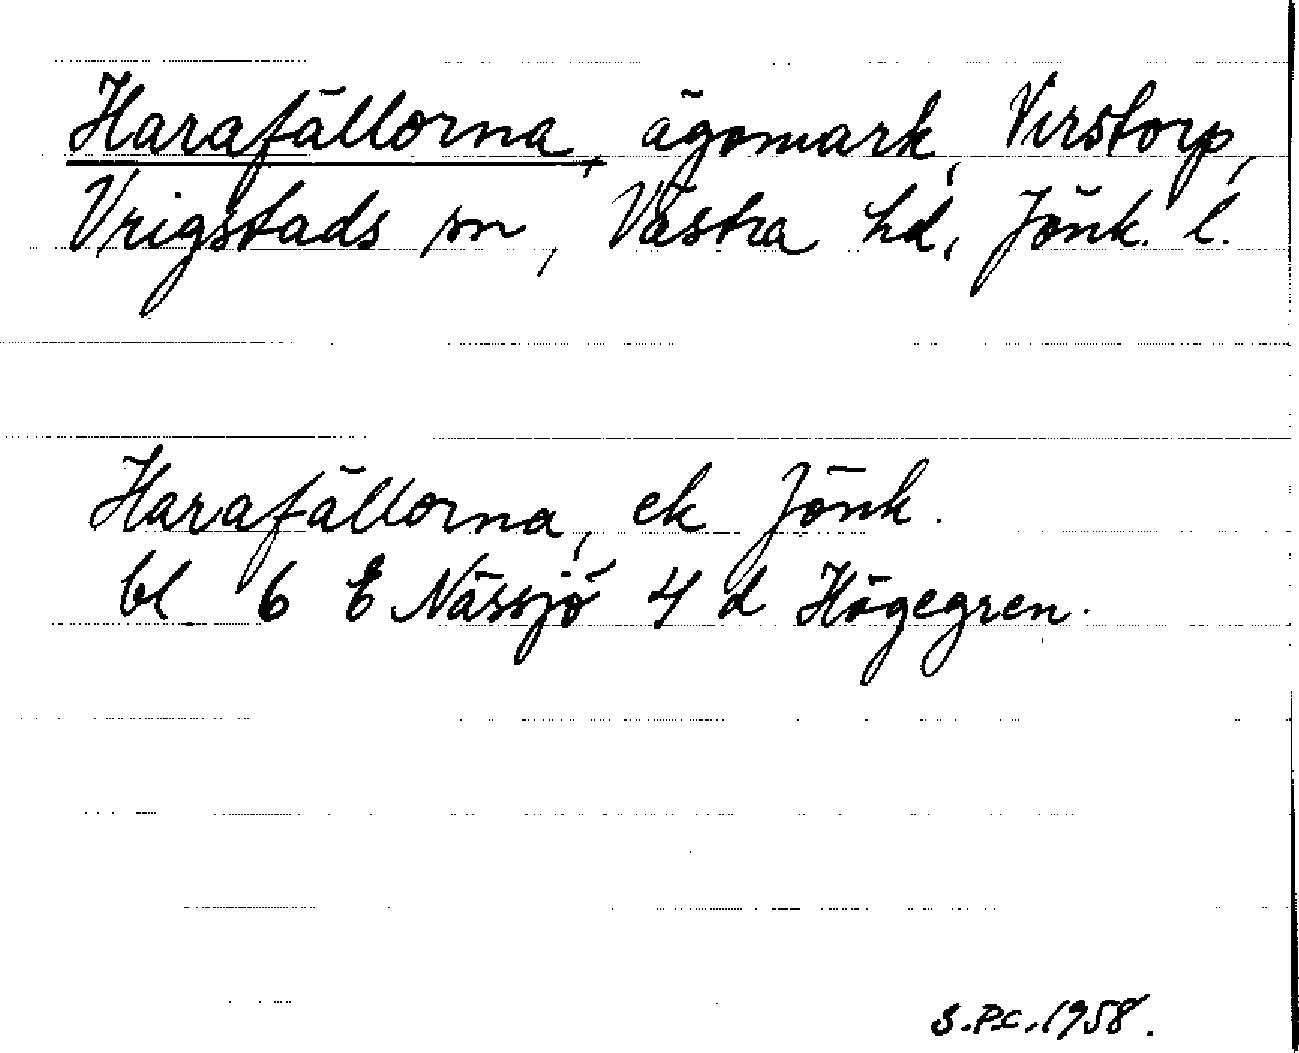 Harafällorna, ägomark, Virstorp,
Vrigstads sn, Västra hd, Jönk. l.
Harafällorna, ek Jönk.
bl 6 E Nässjö 4 d Högegren.
S.P.C. 1958.